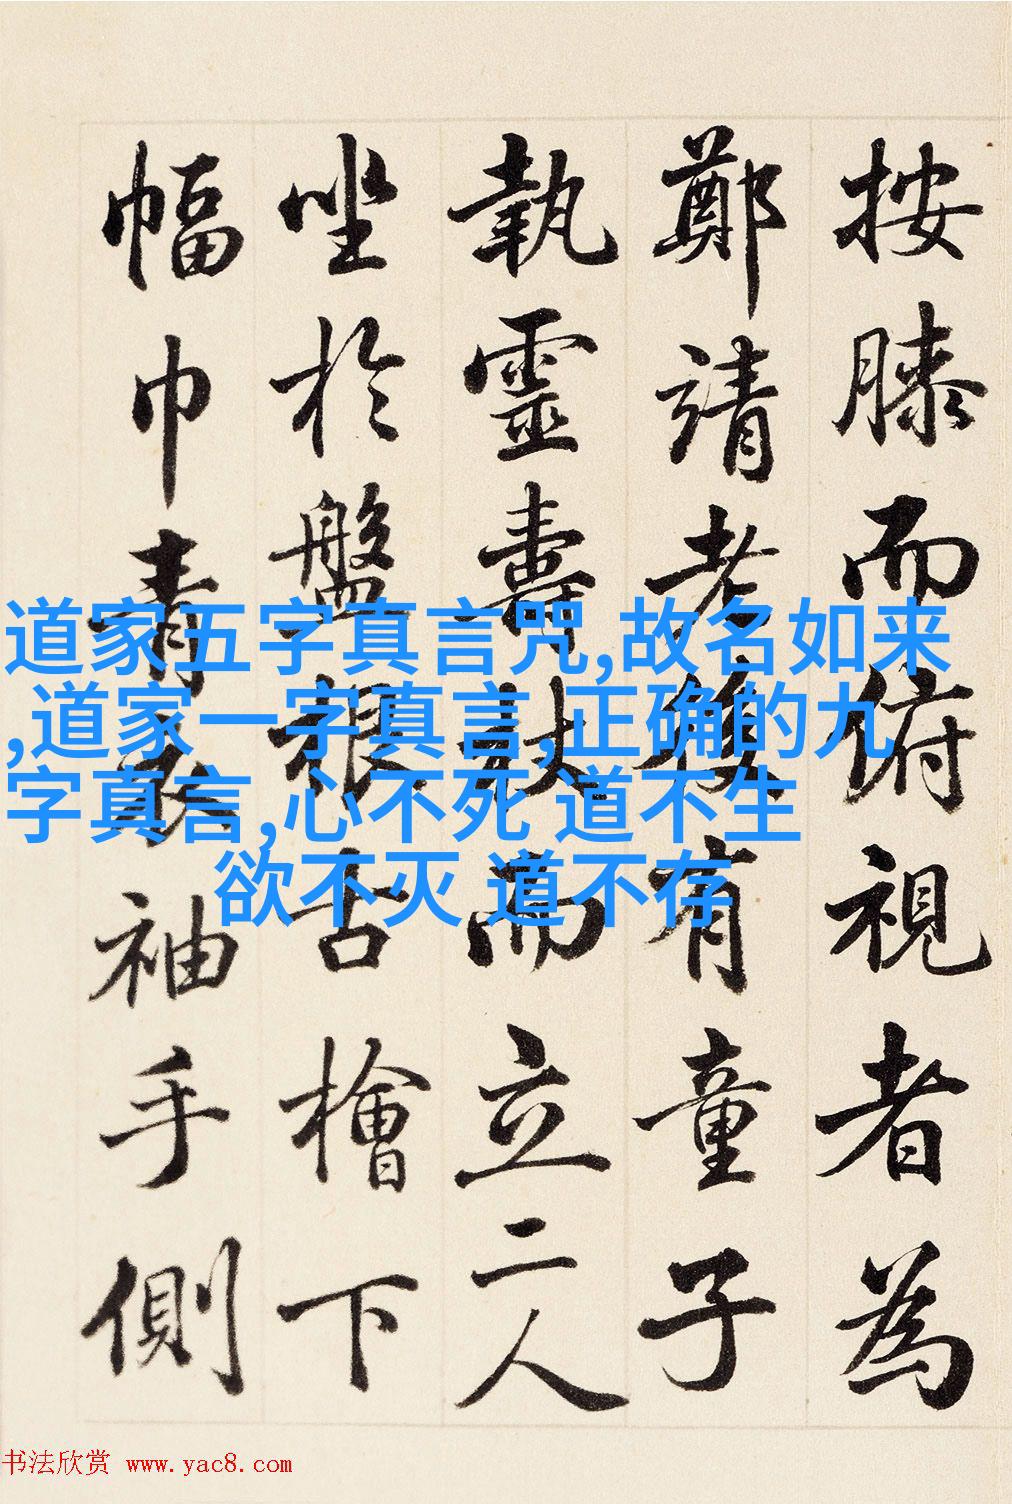 按膝而俯視者為
鄭靖老後有童子
執靈壽杖而立二人
坐於盤根古檜下
幅巾青衣袖手側
道家五字真言咒,故名如来
,道家一字真言,正确的九
字真言,心不死 道不生
欲不灭 道不存
书法欣赏 www.yac8.com